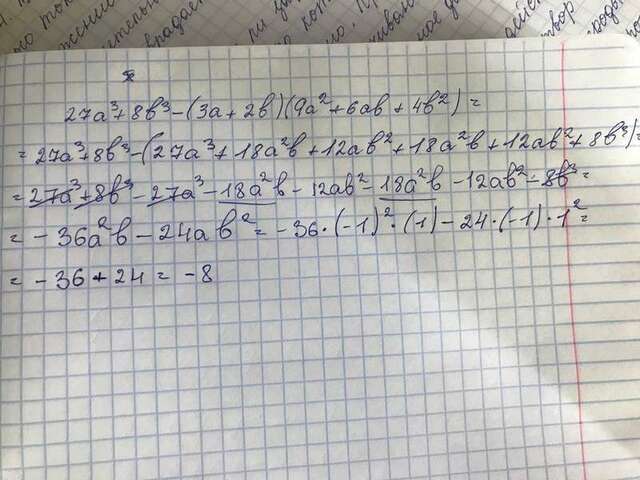 27a³+8b³-(3a+2b)(9a²+6ab+4b²)=
=27a³+8b³-(27a³+18a²b+12ab²+18a²b+12ab²+8b³)=
=27a³+8b³-27a³-18a²b-12ab²-18a²b-12ab²-8b³=
=-36a²b-24ab²=-36·(-1)²·(1)-24·(-1)·1²=
=-36+24=-8